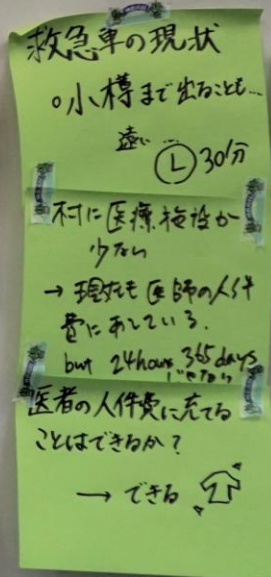 救急車の現状
○小樽まで出ることも…
遠い…
Ⓛ30分
村に医療施設が
少ない
→ 現在も医師の人件
費にあてている.
but 24hours 365days
じゃない
医者の人件費に充てる
ことはできるか?
→ できる